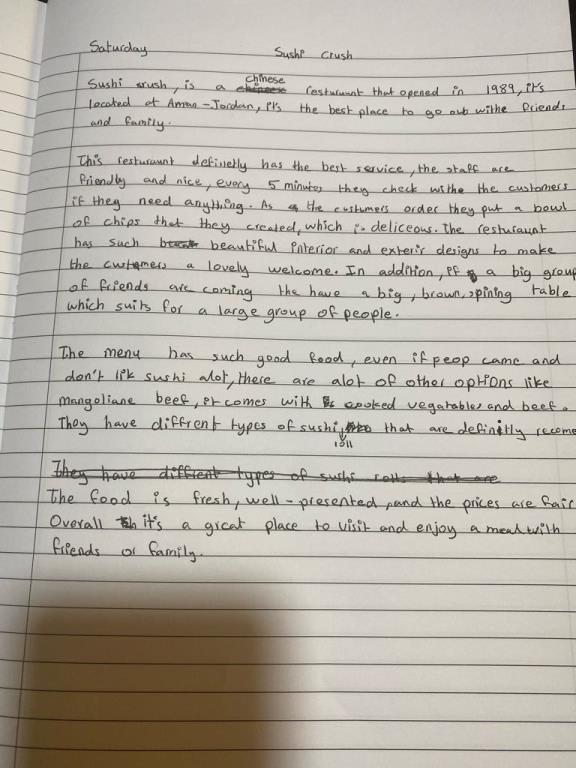 Saturday
Sushi crush
Sushi crush, is a chinese resturaunt that opened in 1989, it's
located at Aman-Jordan, it's the best place to go out withe friends
and family.
This resturaunt definetly has the best service, the staff are
friendly and nice, every 5 minutes they check withe the customers
if they need anything. As the custumers order they put a bowl
of chips that they created, which is deliceous. The resturaunt
has such beautiful interior and exterir designs to make
the customers a lovely welcome. In addition, if a big group
of friends are coming the have a big, brown, spining table
which suits for a large group of people.
The menu has such good food, even if peop came and
don't lik sushi alot, there are alot of other options like
mangoliane beef, it comes with cooked vegatables and beef.
They have diffrent types of sushi, roll that are definitly recome
They have diffrent types of sushi rolls that are
The food is fresh, well-presented, and the prices are fair
Overall it's a great place to visit and enjoy a meal with
friends or family.